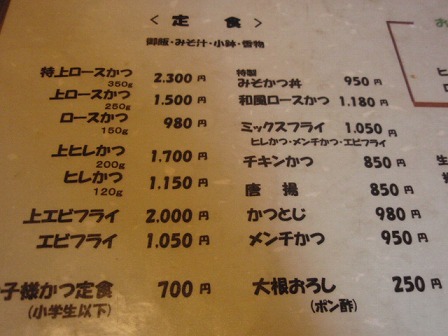 ＜ 定 食 ＞
御飯・みそ汁・小鉢・香物
特上ロースかつ 2.300 円
350g
上ロースかつ 1.500 円
250g
ロースかつ 980 円
150g
上ヒレかつ 1.700 円
200g
ヒレかつ 1.150 円
120g
上エビフライ 2.000 円
エビフライ 1.050 円
子様かつ定食 700 円
(小学生以下)
特製
みそかつ丼 950 円
和風ロースかつ 1.180 円
ミックスフライ 1.050 円
ヒレかつ・メンチかつ・エビフライ
チキンかつ 850 円
唐 揚 850 円
かつとじ 980 円
メンチかつ 950 円
大根おろし 250 円
(ポン酢)